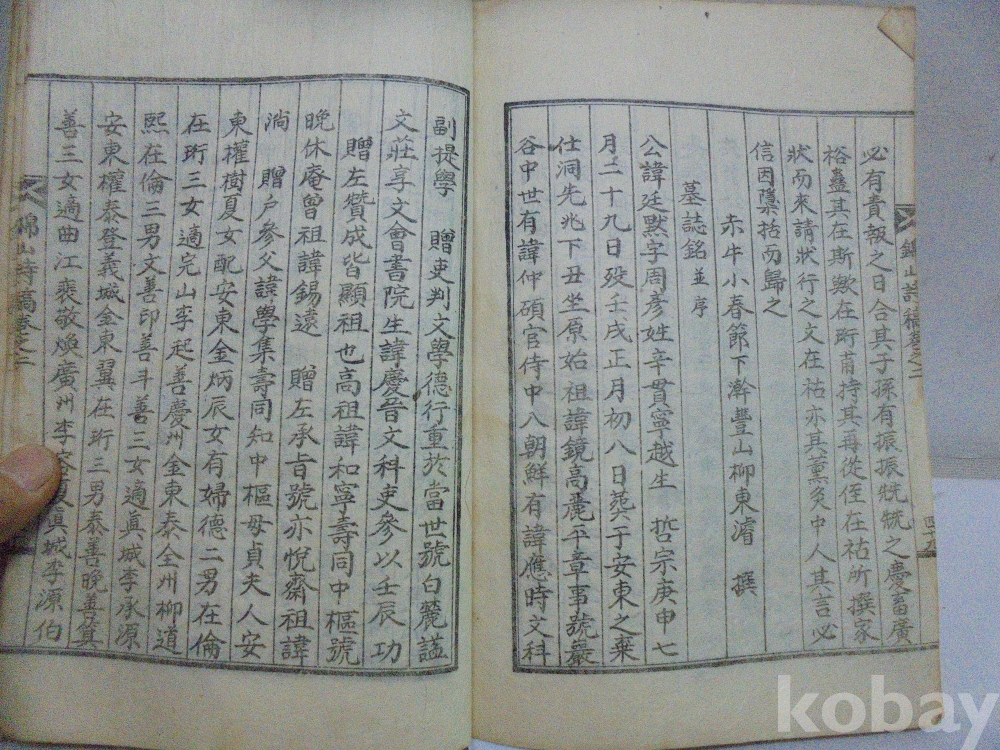 必有責報之日合其子孫有振振兟兟之慶畜廣
裕盡其在斯歟在珩甫持其再從侄在祜所撰家
狀而來請狀行之文在祜亦其薰炙中人其言必
信因檃括而歸之
赤牛小春節下澣豐山柳東濬 撰
墓誌銘 並序
公諱廷默字周彦姓辛貫寧越生 哲宗庚申七
月二十九日歿壬戌正月初八日葬于安東之葉
仕洞先兆下丑坐原始祖諱鏡高麗平章事號嚴
谷中世有諱仲碩官侍中入朝鮮有諱應時文科
錦山詩稿卷之二
副提學 贈吏判文學德行重於當世號白麓謚
文莊享文會書院生諱慶晋文科吏參以壬辰功
贈左贊成皆顯祖也高祖諱和寧壽同中樞號
晚休庵曾祖諱錫遠 贈左承旨號亦悦齋祖諱
淌 贈户參父諱學集壽同知中樞母貞夫人安
東權樹夏女配安東金炳辰女有婦德二男在倫
在珩三女適完山李起善慶州金東泰全州柳道
熙在倫三男文善印善斗善三女適眞城李承源
安東權泰登義城金東翼在珩三男泰善晚善箕
善三女適曲江裵敬煥廣州李 眞城李源伯
錦山詩稿卷之二
kobay